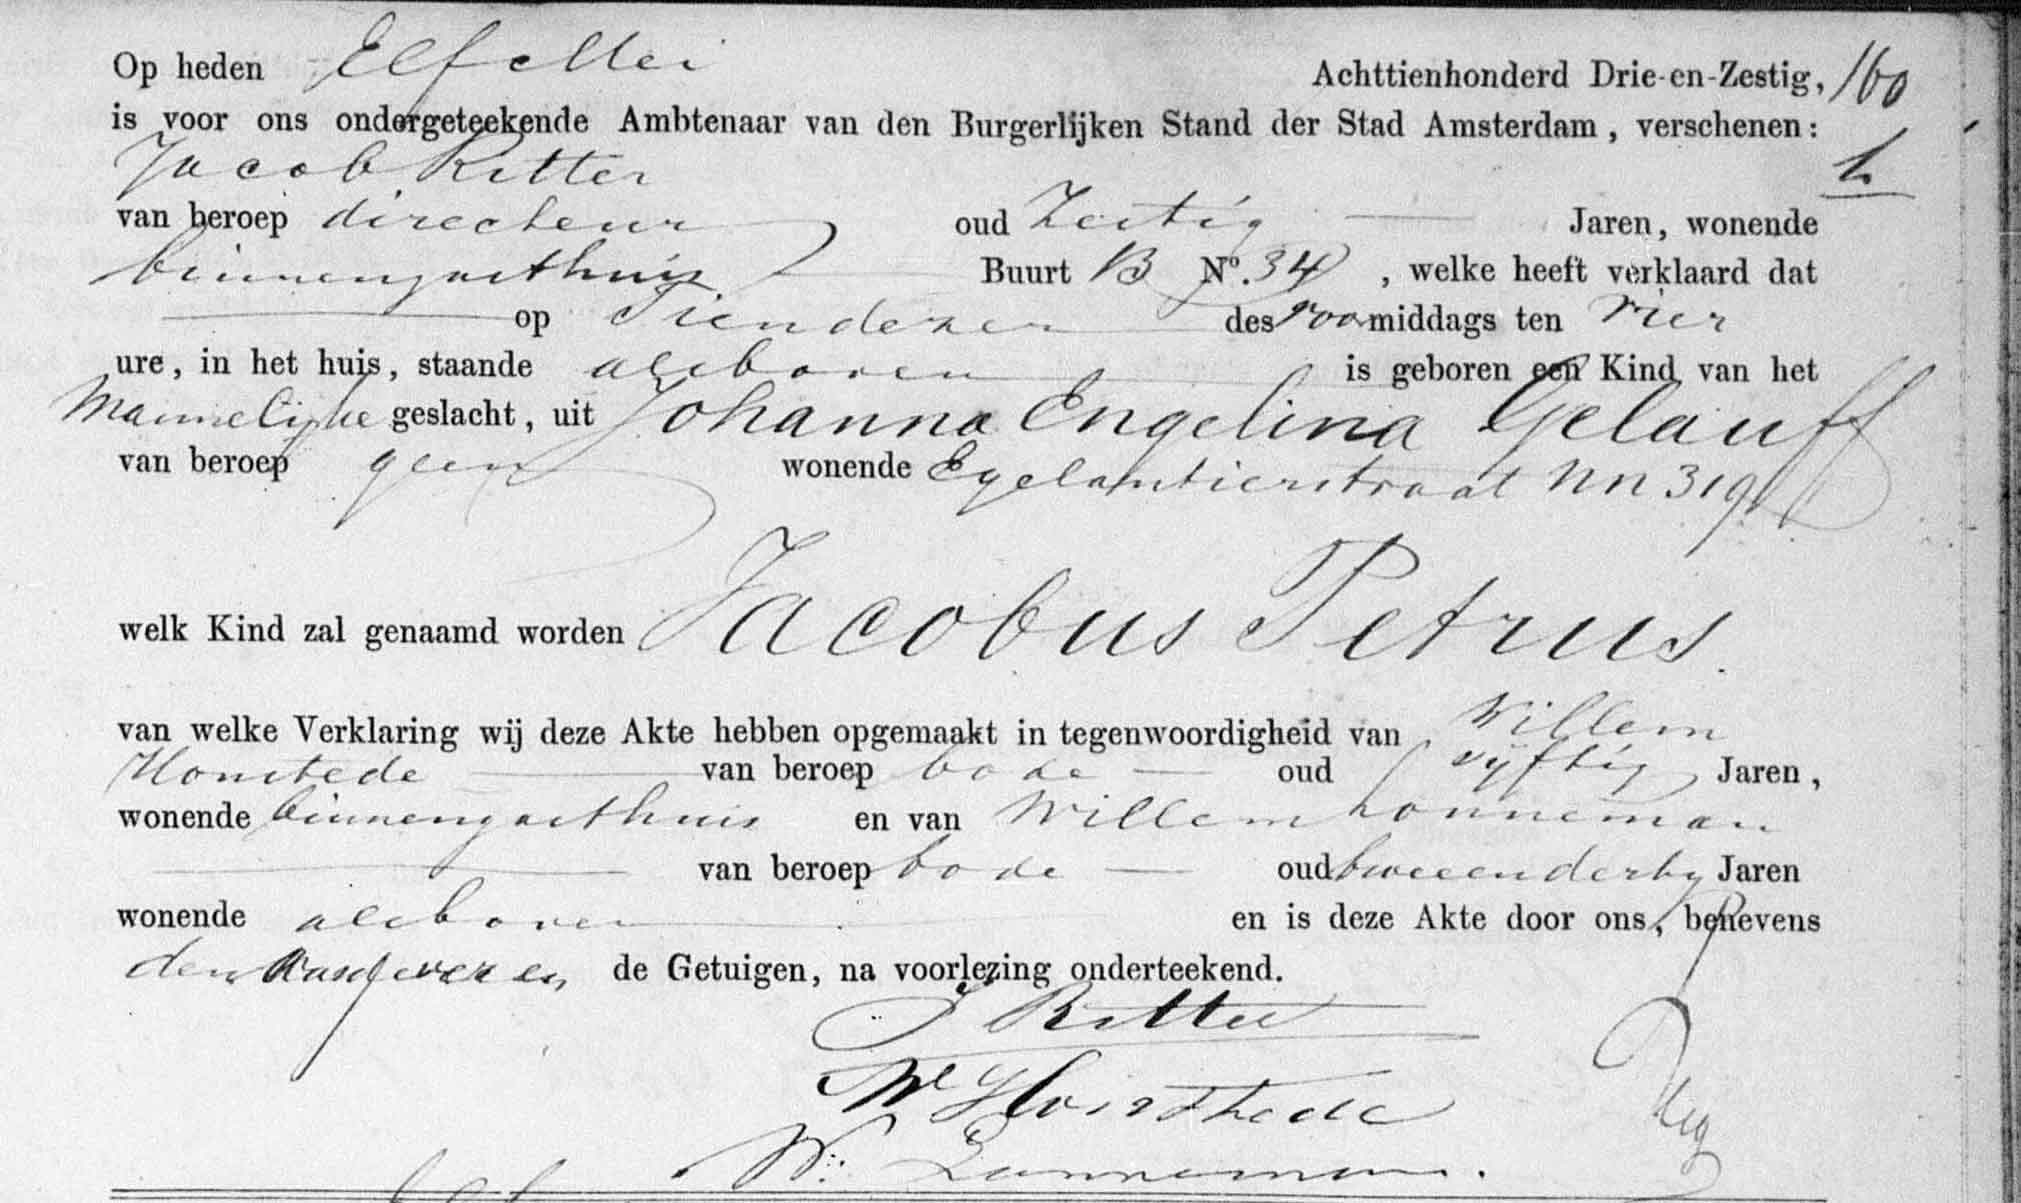 Op heden Elf Mei Achttienhonderd Drie-en-Zestig, 160
is voor ons ondergeteekende Ambtenaar van den Burgerlijken Stand der Stad Amsterdam, verschenen:
Jacob Ritter
van beroep directeur oud Zestig Jaren, wonende
binnengasthuis Buurt B Nº. 34, welke heeft verklaard dat
op Tiendezer des voormiddags ten vier
ure, in het huis, staande alsboven is geboren een Kind van het
Mannelijke geslacht, uit Johanna Engelina Gelauff
van beroep geen wonende Egelantierstraat NN 319
welk Kind zal genaamd worden Jacobus Petrus.
van welke Verklaring wij deze Akte hebben opgemaakt in tegenwoordigheid van Willem
van beroep bode oud vijftig Jaren,
wonende binnengasthuis en van Willem
van beroep bode oud tweeendertig Jaren
wonende alsboven en is deze Akte door ons, benevens
den aangever en de Getuigen, na voorlezing onderteekend.
J Ritter